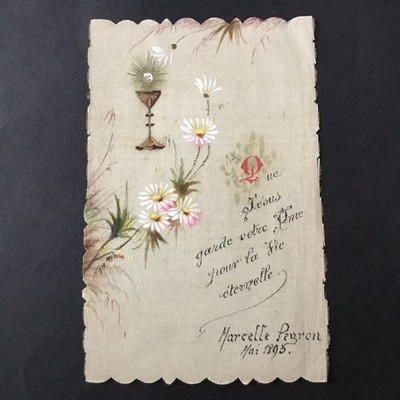 Que
Jésus
garde votre Âme
pour la Vie
éternelle
Marcelle Peyron
Mai 1895.